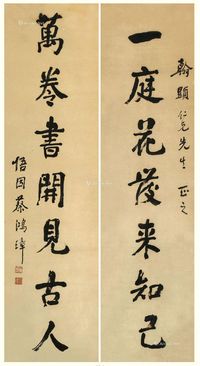 翰顯仁兄先生 正之
一庭花發来知己
萬卷書開見古人
悟因蔡鴻